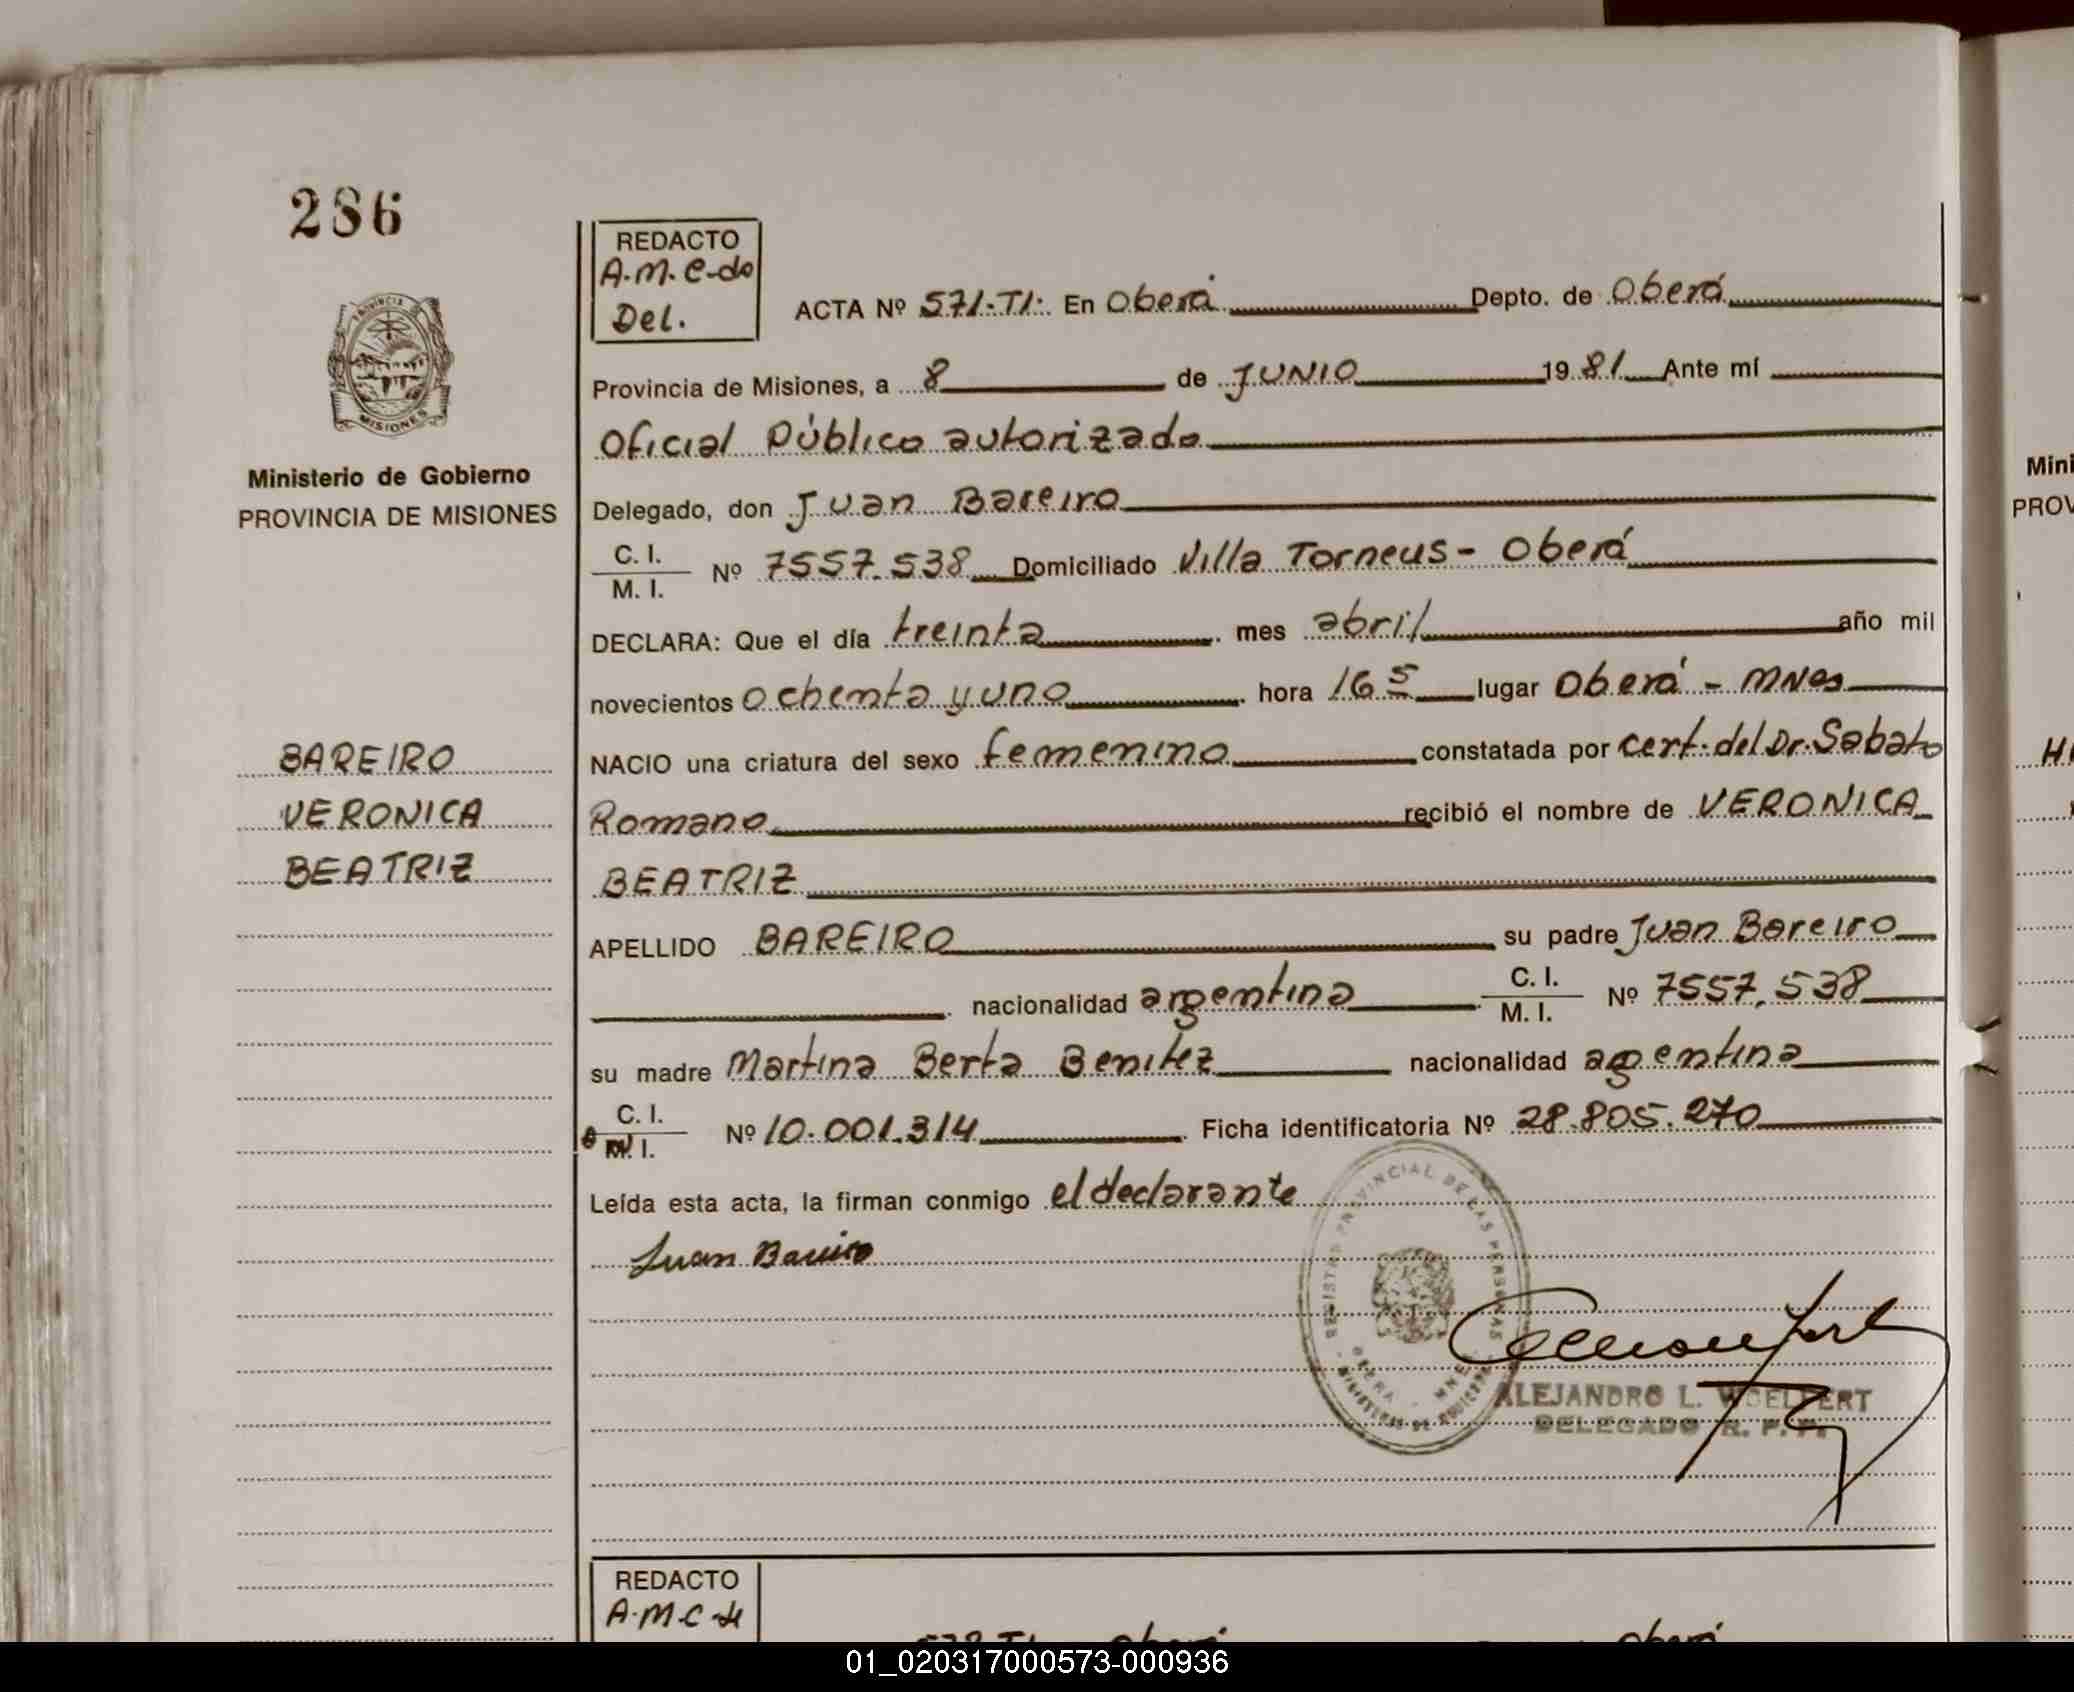 286
REDACTO
A.M.C-do
Del.
ACTA Nº 571-TI. En Oberá Depto. de Oberá
Provincia de Misiones, a 8 de JUNIO 1981 Ante mí
Oficial Público autorizado
Delegado, don Juan Bareiro
C. I.
M. I. Nº 7557.538 Domiciliado Villa Torneus - Oberá
DECLARA: Que el día treinta mes abril año mil
novecientos ochenta y uno hora 16 5 lugar Oberá - MNes
NACIO una criatura del sexo femenino constatada por cert. del Dr. Sabato
Romano recibió el nombre de VERONICA
BEATRIZ
APELLIDO BAREIRO su padre Juan Bareiro
nacionalidad argentina C. I.
M. I. Nº 7557.538
su madre Martina Berta Benitez nacionalidad argentina
C. I.
M. I. Nº 10.001.314 Ficha identificatoria Nº 28.805.270
Leída esta acta, la firman conmigo el declarante
Juan Bareiro
REGISTRO PROVINCIAL DE LAS PERSONAS
OBERA MNES
ALEJANDRO L. WOELFERT
DELEGADO R. P. P.
PROVINCIA
MISIONES
Ministerio de Gobierno
PROVINCIA DE MISIONES
BAREIRO
VERONICA
BEATRIZ
REDACTO
Oberá Oberá
Mini
PROV
01_020317000573-000936